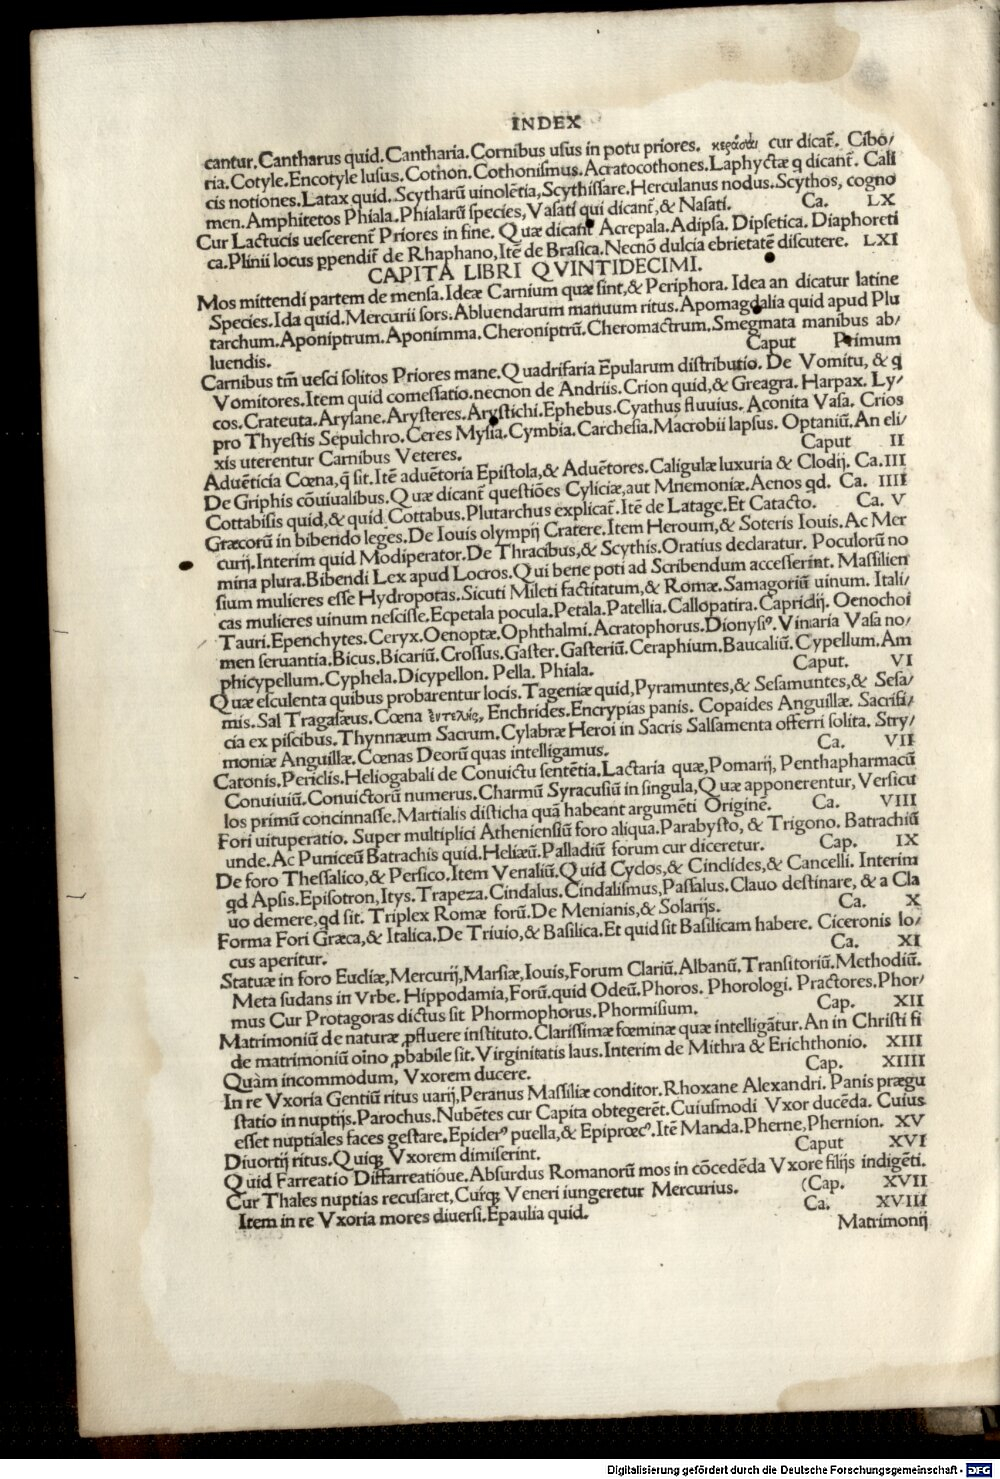 INDEX
cantur. Cantharus quid. Cantharia. Cornibus usus in potu priores. κεράσαι cur dicat̃. Cibo/
ria. Cotyle. Encotyle lusus. Cothon. Cothonismus. Acratocothones. Laphyctæ q dicant̃. Cali
cis notiones. Latax quid. Scytharũ uinolẽtia, Scythissare. Herculanus nodus. Scythos, cogno
men. Amphitetos Phiala. Phialarũ species, Vasati qui dicant̃, & Nasati. Ca. LX
Cur Lactucis uescerent̃ Priores in fine. Quæ dicant̃ Acrepala. Adipsa. Dipsetica. Diaphoreti
ca. Plinii locus ꝓpendit̃ de Rhaphano, Itẽ de Brasica. Necnõ dulcia ebrietatẽ discutere. LXI
CAPITA LIBRI QVINTIDECIMI.
Mos mittendi partem de mensa. Ideæ Carnium quæ sint, & Periphora. Idea an dicatur latine
Species. Ida quid. Mercurii sors. Abluendarum manuum ritus. Apomagdalia quid apud Plu
tarchum. Aponiptrum. Aponimma. Cheroniptrũ. Cheromactrum. Smegmata manibus ab/
luendis. Caput Primum
Carnibus tm̃ uesci solitos Priores mane. Quadrifaria Epularum distributio. De Vomitu, & q
Vomitores. Item quid comessatio. necnon de Andriis. Crion quid, & Greagra. Harpax. Ly/
cos. Crateuta. Arysane. Arysteres. Arystichi. Ephebus. Cyathus fluuius. Aconita Vasa. Crios
pro Thyestis Sepulchro. Ceres Mysia. Cymbia. Carchesia. Macrobii lapsus. Optaniũ. An eli/
xis uterentur Carnibus Veteres. Caput II
Aduẽticia Cœna, q̃ sit. Itẽ aduẽtoria Epistola, & Aduẽtores. Caligulæ luxuria & Clodij. Ca. III
De Griphis cõuiualibus. Quæ dicant̃ questiões Cyliciæ, aut Mnemoniæ. Aenos qd. Ca. IIII
Cottabisis quid, & quid Cottabus. Plutarchus explicat̃. Itẽ de Latage. Et Catacto. Ca. V
Græcorũ in bibendo leges. De Iouis olympij Cratere. Item Heroum, & Soteris Iouis. Ac Mer
curij. Interim quid Modiperator. De Thracibus, & Scythis. Oratius declaratur. Poculorũ no
mina plura. Bibendi Lex apud Locros. Qui bene poti ad Scribendum accesserint. Massilien
sium mulieres esse Hydropotas. Sicuti Mileti factitatum, & Romæ. Samagoriũ uinum. Itali/
cas mulieres uinum nescisse. Ecpetala pocula. Petala. Patellia. Callopatira. Capridij. Oenochoi
Tauri. Epenchytes. Ceryx. Oenoptæ. Ophthalmi. Acratophorus. Dionysiꝰ. Vinaria Vasa no/
men seruantia. Bicus. Bicariũ. Crossus. Gaster. Gasteriũ. Ceraphium. Baucaliũ. Cypellum. Am
phicypellum. Cyphela. Dicypellon. Pella. Phiala. Caput. VI
Quæ esculenta quibus probarentur locis. Tageniæ quid, Pyramuntes, & Sesamuntes, & Sesa/
mis. Sal Tragasæus. Cœna ἐυτελής, Enchrides. Encrypias panis. Copaides Anguillæ. Sacrifi/
cia ex piscibus. Thynnæum Sacrum. Cylabræ Heroi in Sacris Salsamenta offerri solita. Stry/
moniæ Anguillæ. Cœnas Deorũ quas intelligamus. Ca. VII
Catonis. Periclis. Heliogabali de Conuictu sentẽtia. Lactaria quæ, Pomarij, Penthapharmacũ
Conuiuiũ. Conuictorũ numerus. Charmũ Syracusiũ in singula, Quæ apponerentur, Versicu
los primũ concinnasse. Martialis disticha quã habeant argumẽti Originẽ. Ca. VIII
Fori uituperatio. Super multiplici Atheniensiũ foro aliqua. Parabysto, & Trigono. Batrachiũ
unde. Ac Puniceũ Batrachis quid. Heliæũ. Palladiũ forum cur diceretur. Cap. IX
De foro Thessalico, & Persico. Item Venaliũ. Quid Cyclos, & Cinclides, & Cancelli. Interim
qd Apsis. Episotron, Itys. Trapeza. Cindalus. Cindalismus, Passalus. Clauo destinare, & a Cla
uo demere, qd sit. Triplex Romæ forũ. De Menianis, & Solarijs. Ca. X
Forma Fori Græca, & Italica. De Triuio, & Basilica. Et quid sit Basilicam habere. Ciceronis lo/
cus aperitur. Ca. XI
Statuæ in foro Eudiæ, Mercurij, Marsiæ, Iouis, Forum Clariũ. Albanũ. Transitoriũ. Methodiũ.
Meta sudans in Vrbe. Hippodamia, Forũ. quid Odeũ. Phoros. Phorologi. Practores. Phor/
mus Cur Protagoras dictus sit Phormophorus. Phormisium. Cap. XII
Matrimoniũ de naturæ ꝓfluere instituto. Clarissimæ fœminæ quæ intelligãtur. An in Christi fi
de matrimoniũ oino ꝓbabile sit. Virginitatis laus. Interim de Mithra & Erichthonio. XIII
Quàm incommodum, Vxorem ducere. Cap. XIIII
In re Vxoria Gentiũ ritus uarij, Peranus Massiliæ conditor. Rhoxane Alexandri. Panis prægu
statio in nuptijs. Parochus. Nubẽtes cur Capita obtegerẽt. Cuiusmodi Vxor ducẽda. Cuius
esset nuptiales faces gestare. Epiclerꝰ puella, & Epiprœcꝰ. Itẽ Manda. Pherne, Phernion. XV
Diuortij ritus. Quiqꝫ Vxorem dimiserint. Caput XVI
Quid Farreatio Diffarreatioue. Absurdus Romanorũ mos in cõcedẽda Vxore filijs indigẽti.
Cur Thales nuptias recusaret, Curqꝫ Veneri iungeretur Mercurius. (Cap. XVII
Item in re Vxoria mores diuersi. Epaulia quid. Ca. XVIII
Matrimonij
Digitalisierung gefördert durch die Deutsche Forschungsgemeinschaft - DFG